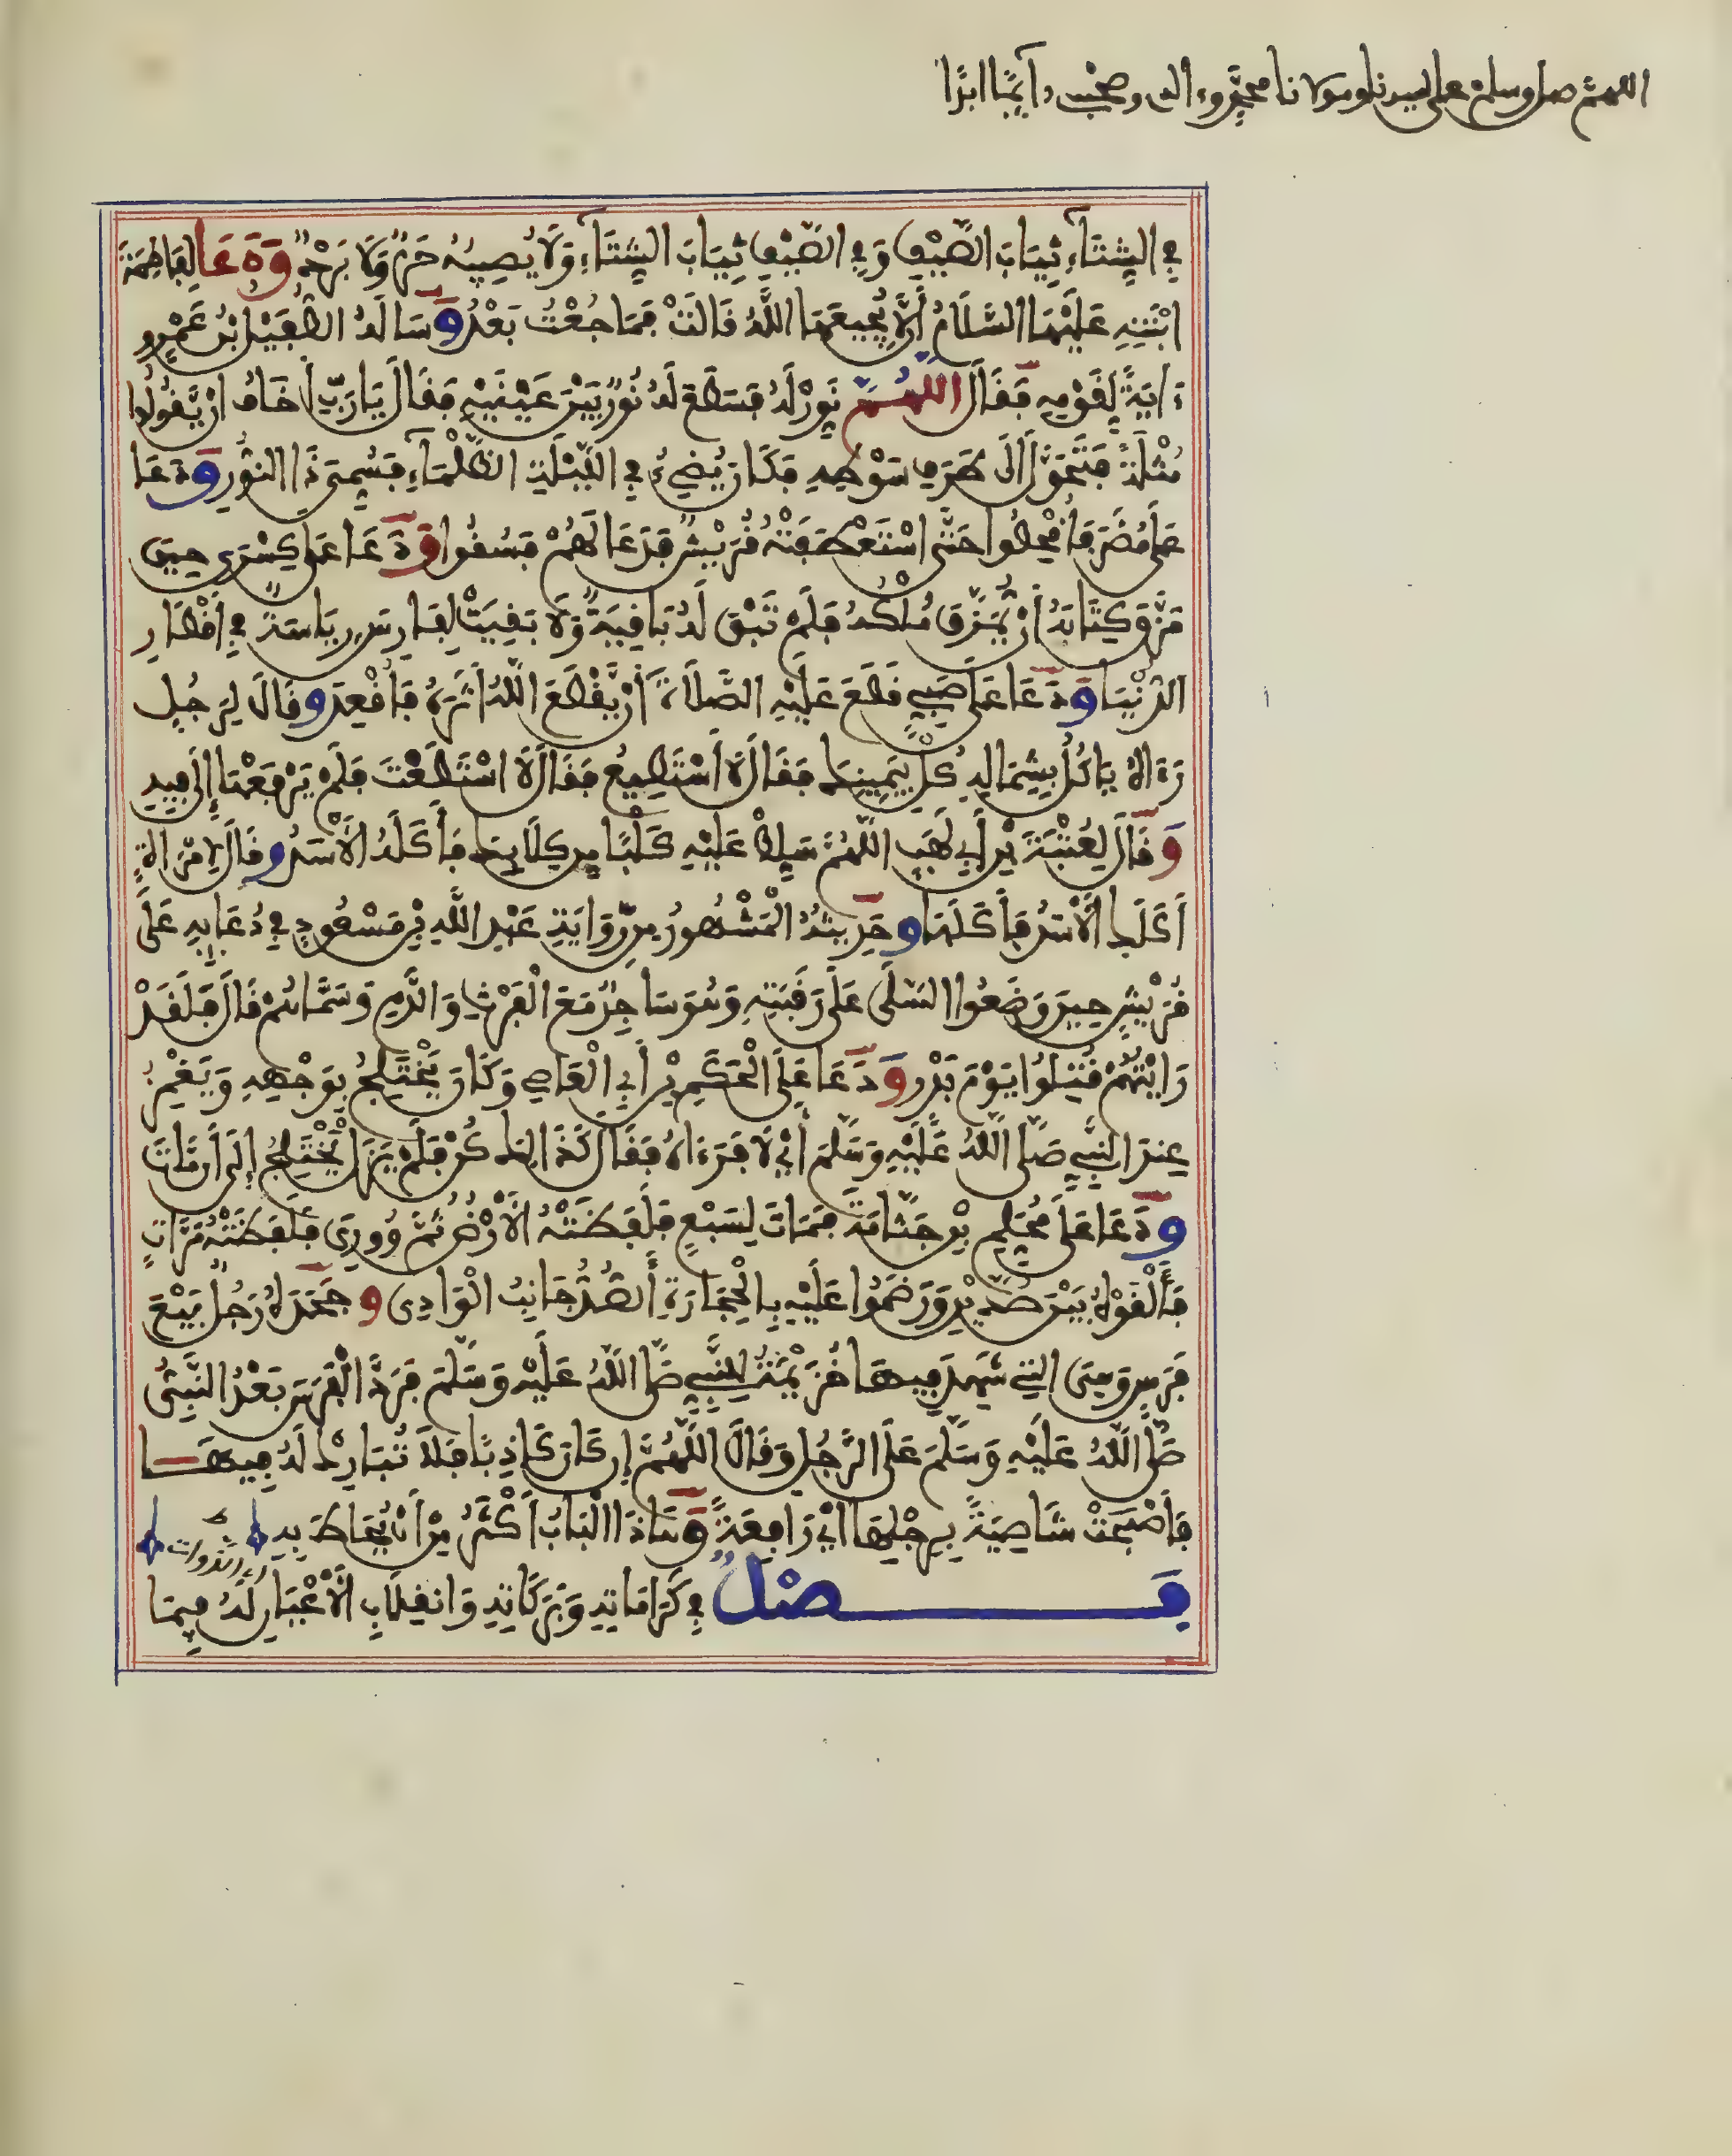 اللهم صل وسلم على سيدنا ومولانا محمد وءاله وصحبه دآيما ابدا
في الشتآء ثياب الصيف وفي الصيف ثياب الشتآء ولا يصيبه حر ولا برد ودعا لفاطمة
ابنته عليها السلام ألا يجيعها الله قالت فما جعت بعد وساله الطفيل ابن عمرو
ءاية لقومه فقال اللهم نور له فسطع له نور بين عينيه فقال يا رب أخاف ان يقولوا
مثلة فتحول الى طرف سوطه فكان يضيء في الليلة الظلمآء فسمي ذا النور ودعا
على مضر فأقحطوا حتى استعطفته قريش فدعا لهم فسقوا ودعا على كسرى حين
مزق كتابه أن يمزق ملكه فلم تبق له باقية ولا بقيت لفارس رياسة في أقطار
الدنيا ودعا على صبي قطع عليه الصلاة أن يقطع الله اثره فأقعد وقال لرجل
رءاه ياكل بشماله كل بيمينك فقال لا أستطيع فقال لا استطعت فلم يرفعها إلى فيه
وقال لعتبة بن أبي لهب اللهم سلط عليه كلبا من كلابك فأكله الأسد وقال لامراة
أكلك الأسد فأكلها وحديثه المشهور من رواية عبد الله بن مسعود في دعايه على
قريش حين وضعوا السلى على رقبته وهو ساجد مع الفرث والدم وسماهم قال فلقد
رايتهم قتلوا يوم بدر ودعا على الحكم بن أبي العاصي وكان يختلج بوجهه ويغمز
عند النبي صلى الله عليه وسلم أي لا فرءاه فقال كذالك كن فلم يزل يختلج إلى أن مات
ودعا على محلم بن جثامة فمات لسبع فلفظته الأرض ثم ووري فلفظته مرات
فألقوه بين صدين ورضموا عليه بالحجارة ألصد جانب الوادي وجحده رجل بيع
فرس وهي التي شهد فيها خزيمة للنبي صلى الله عليه وسلم فرد الفرس بعد النبي
صلى الله عليه وسلم على الرجل وقال اللهم إن كان كاذبا فلا تبارك له فيها
فأصبحت شاصية برجلها أي رافعة وهاذا الباب أكثر من أن يحاط به
فصل في كراماته وبركاته وانقلاب الأعيان له فيما